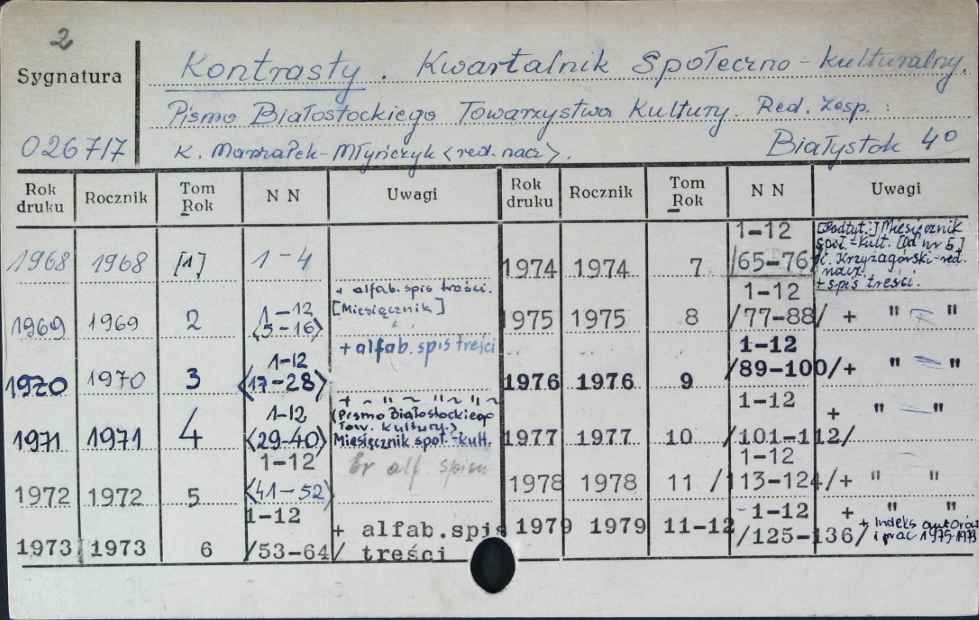 2
Sygnatura
Kontrasty. Kwartalnik Społeczno-kulturalny.
Pismo Białostockiego Towarzystwa Kultury. Red. zesp.:
026717
K. Marszałek-Młyńczyk <red. nacz>. Białystok 4°
Rok druku Rocznik Tom Rok N N Uwagi Rok druku Rocznik Tom Rok N N Uwagi
1968 1968 [1] 1-4
+ alfab. spis treści.
1969 1969 2 1-12 <5-16> [Miesięcznik]
+ alfab. spis treści
1970 1970 3 1-12 <17-28>
+ ~ " ~ " ~ " ~
1971 1971 4 1-12 <29-40> (Pismo Białostockiego
Tow. Kultury.)
Miesięcznik społ.-kult.
1972 1972 5 1-12 <41-52> alf. spisu
1973 1973 6 1-12 /53-64/ + alfab.spis
treści
1974 1974 7 1-12 /65-76/ [Podtyt.:] Miesięcznik
społ-kult. [Od nr 5]
K. Krzyżagórski-red.
nacz.
+ spis treści.
1975 1975 8 1-12 /77-88/ + " — "
1976 1976 9 1-12 /89-100/+ " — "
1977 1977 10 1-12 /101-112/ + " — "
1978 1978 11 1-12 /113-124/+ " "
1979 1979 11-12 1-12 /125-136/ + " "
+ Indeks autorów
i prac 1975-1979